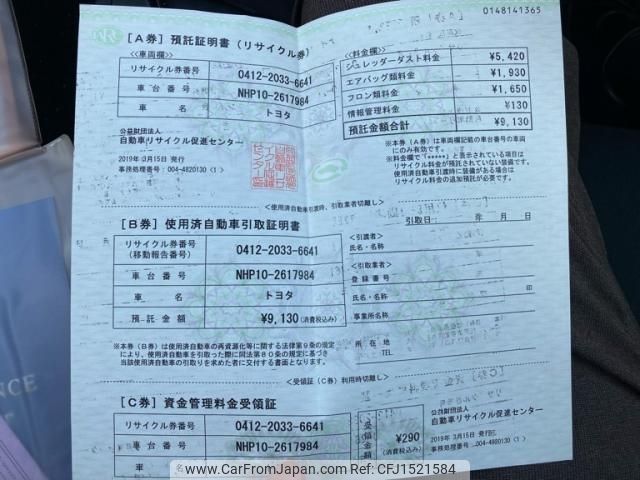 0148141365
[A券] 預託証明書 (リサイクル券)
<<車両欄>>
リサイクル券番号 0412-2033-6641
車台番号 NHP10-2617984
車名 トヨタ
<<料金欄>>
シュレッダーダスト料金 ¥5,420
エアバッグ類料金 ¥1,930
フロン類料金 ¥1,650
情報管理料金 ¥130
預託金額合計 ¥9,130
公益財団法人
自動車リサイクル促進センター
2019年 3月15日 発行
事務処理番号:004-4820130 (1)
※本券 (A券) は車両欄記載の車台番号の車両
にのみ有効です。
※料金欄で「*****」と表示されている項目は
リサイクル料金が預託されていない装備です。
使用済自動車引渡時に装備がある場合は
リサイクル料金の追加預託が必要です。
<使用済自動車引渡時、引取業者切離し>
[B券] 使用済自動車引取証明書
引取日: 年 月 日
リサイクル券番号
(移動報告番号) 0412-2033-6641
車台番号 NHP10-2617984
車名 トヨタ
預託金額 ¥9,130 (消費税込み)
<引渡者>
氏名・名称
<引取業者>
登録番号
氏名・名称 印
事業所名称
所在地
TEL
※本券 (B券) は使用済自動車の再資源化等に関する法律第9条の規定
により、使用済自動車を引取った際に同法第80条の規定に基づき
当該使用済自動車の引取りを求めた者に交付する書面となります。
<受領証 (C券) 利用時切離し>
[C券] 資金管理料金受領証
リサイクル券番号 0412-2033-6641
車台番号 NHP10-2617984
車
受領金額 ¥290
(消費税込み)
公益財団法人
自動車リサイクル促進センター
2019年 3月15日 発行
事務処理番号:004-4820130 (1)
NCE
CarFromJapan - CFJ1521584